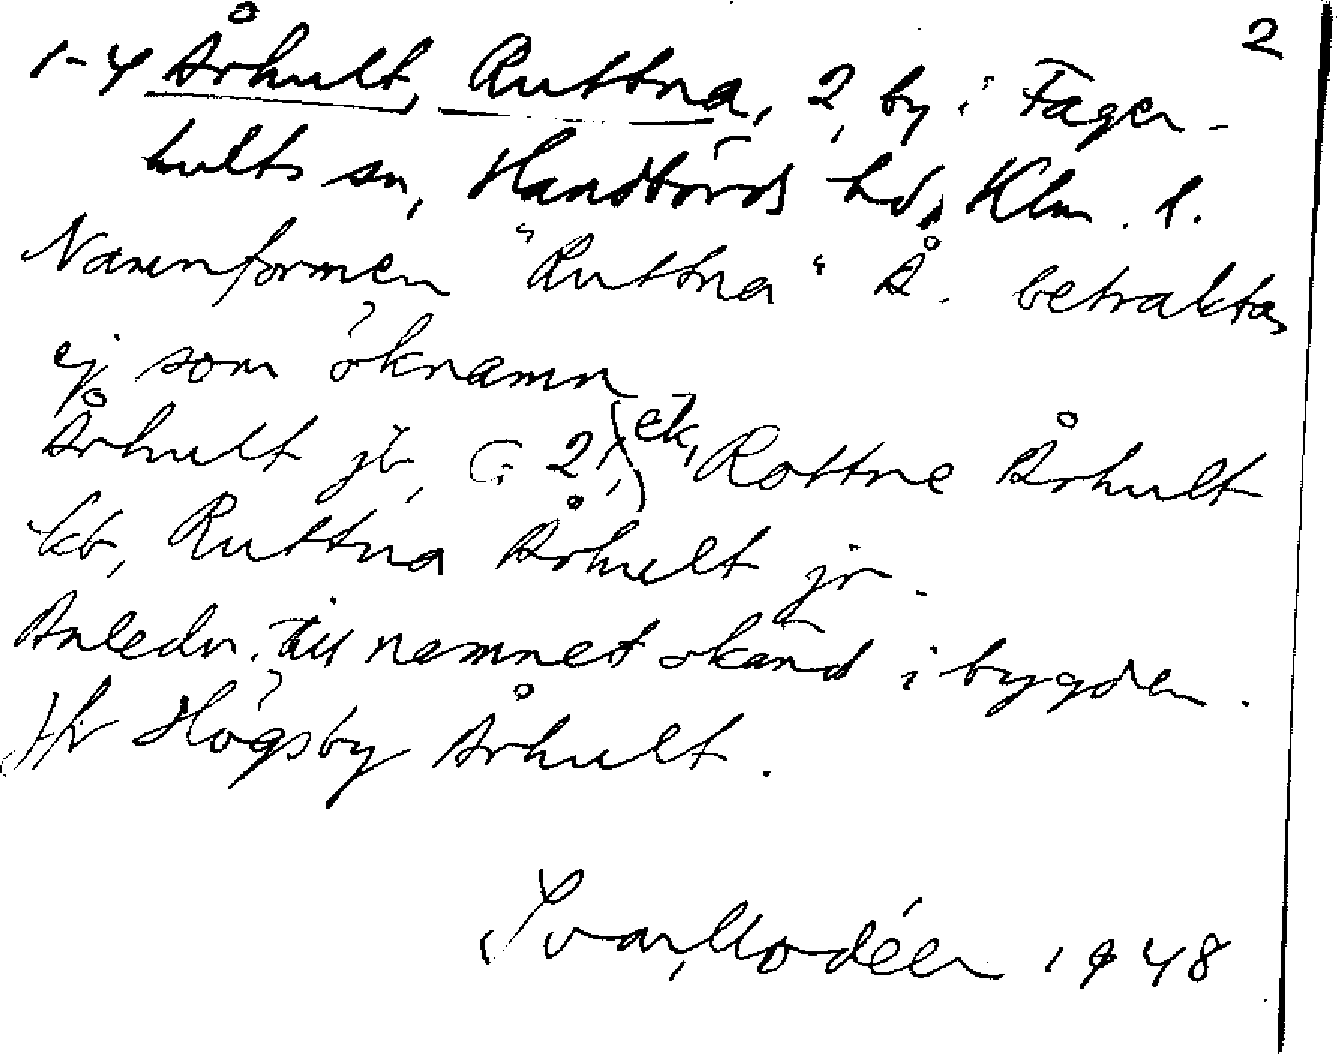 2
1-4 Århult, Ruttna, 2, by i Fager-
hults sn, Handbörds hd, Klm. l.
Namnformen "Ruttna" Å. betraktas
ej som öknamn
Århult jb, C. 2, ek, Rottne Århult
kb, Ruttna Århult jr.
Anledn. till namnet okänd i bygden.
Jfr Högsby Århult.
Ivar Modéer 1948